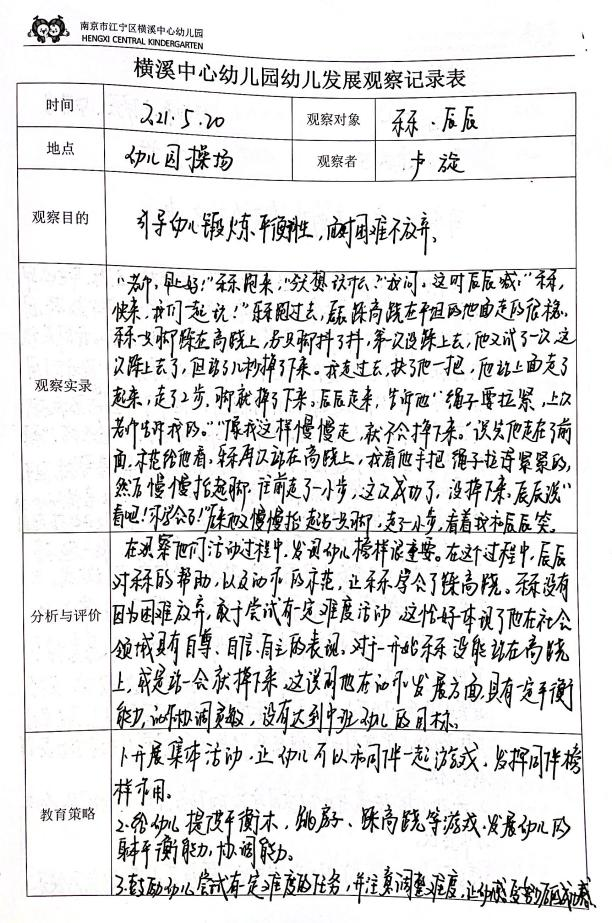 南京市江宁区横溪中心幼儿园
HENGXI CENTRAL KINDERGARTEN
横溪中心幼儿园幼儿发展观察记录表
时间 221.5.20 观察对象 禾禾·辰辰
地点 幼儿园操场 观察者 卞旋
观察目的 引导幼儿锻炼平衡性,面对困难不放弃。
"老师,早上好!"禾禾跑来,"你想玩什么?"我问。这时辰辰喊:"禾禾,
快来,我们一起玩!"禾禾跑过去,辰辰踩高跷在平坦的地面走的很稳。
禾禾一只脚踩在高跷上,另一只脚抖了抖,第一次没踩上去,他又试了一次,这
次踩上去了,但站了几秒掉了下来。我走过去,扶了他一把,他站上面走了
观察实录 起来,走了2步,脚就掉了下来。辰辰走来,告诉他"绳子要拉紧,上次
老师告诉我的。""像我这样慢慢走,就不会掉下来。"说完他走在了前
面,示范给他看。禾禾再次站在高跷上,我看他手把绳子拉得紧紧的,
然后慢慢抬起脚,往前走了一小步,这次成功了,没掉下来,辰辰说"
看吧!你学会了!"禾禾又慢慢抬起另一只脚,走了一小步,看着我和辰辰笑。
在观察他们活动过程中,发现幼儿榜样很重要。在这个过程中,辰辰
对禾禾的帮助,以及动作的示范,让禾禾学会了踩高跷。禾禾没有
分析与评价 因为困难放弃,敢于尝试有一定难度活动,这恰好体现了他在社会
领域具有自尊、自信、自主的表现。对于一开始禾禾没能站在高跷
上,或是站一会就掉下来,这说明他在动作发展方面,具有一定平衡
能力,动作协调灵敏,没有达到中班幼儿的目标。
1.开展集体活动,让幼儿可以和同伴一起游戏,发挥同伴榜
样作用。
教育策略 2.给幼儿提供平衡木,跳房子、踩高跷等游戏,发展幼儿的
身体平衡能力,协调能力。
3.鼓励幼儿尝试有一定难度的任务,并注意调整难度,让幼儿感受